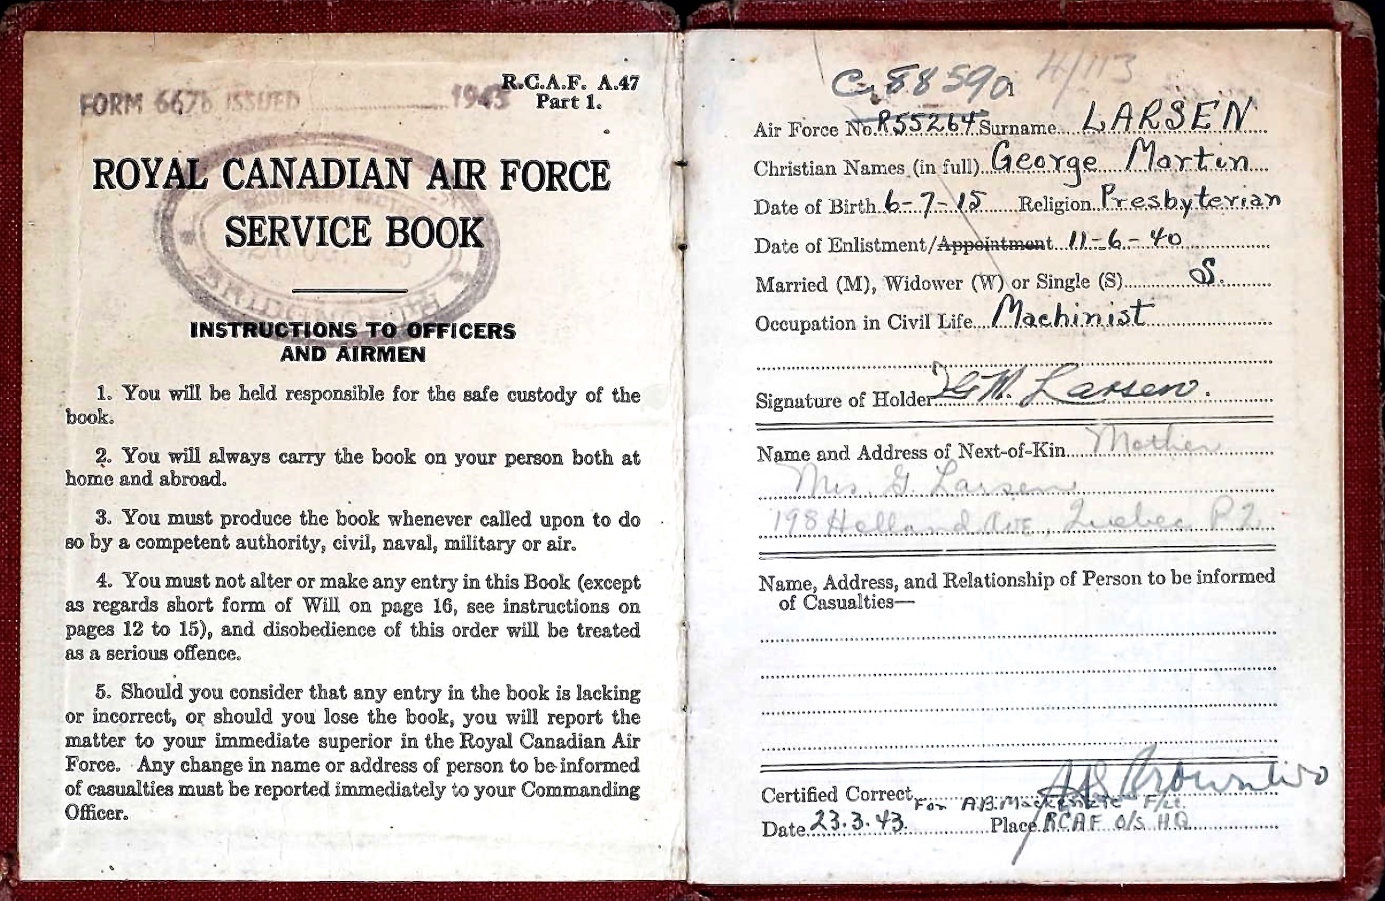 R.C.A.F. A.47
Part 1.
FORM 667b ISSUED 1943
ROYAL CANADIAN AIR FORCE
SERVICE BOOK
INSTRUCTIONS TO OFFICERS
AND AIRMEN
1. You will be held responsible for the safe custody of the
book.
2. You will always carry the book on your person both at
home and abroad.
3. You must produce the book whenever called upon to do
so by a competent authority, civil, naval, military or air.
4. You must not alter or make any entry in this Book (except
as regards short form of Will on page 16, see instructions on
pages 12 to 15), and disobedience of this order will be treated
as a serious offence.
5. Should you consider that any entry in the book is lacking
or incorrect, or should you lose the book, you will report the
matter to your immediate superior in the Royal Canadian Air
Force. Any change in name or address of person to be informed
of casualties must be reported immediately to your Commanding
Officer.
4/113
Air Force No. R55264 Surname LARSEN
Christian Names (in full) George Martin
Date of Birth 6-7-15 Religion Presbyterian
Date of Enlistment/Appointment 11-6-40
Married (M), Widower (W) or Single (S) S.
Occupation in Civil Life Machinist
Signature of Holder G.M. Larsen.
Name and Address of Next-of-Kin Mother
Mrs. G. Larsen
198 Holland Ave, Quebec P2
Name, Address, and Relationship of Person to be informed
of Casualties—
Certified Correct
For A.B. MacKenzie F/Lt
Date 23.3.43. Place RCAF O/S HQ